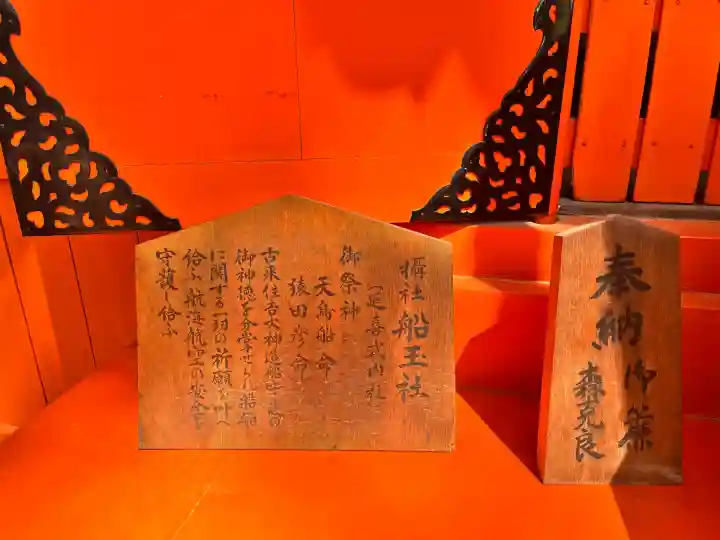 摂社 船玉社
(延喜式内社)
御祭神
天鳥船命
猿田彦命
古来住吉大神造船
御神徳を分掌せられ船舶
に関する一切の祈願を叶へ
給ふ航海航空の安全を
守護し給ふ
奉納御簾
森元良